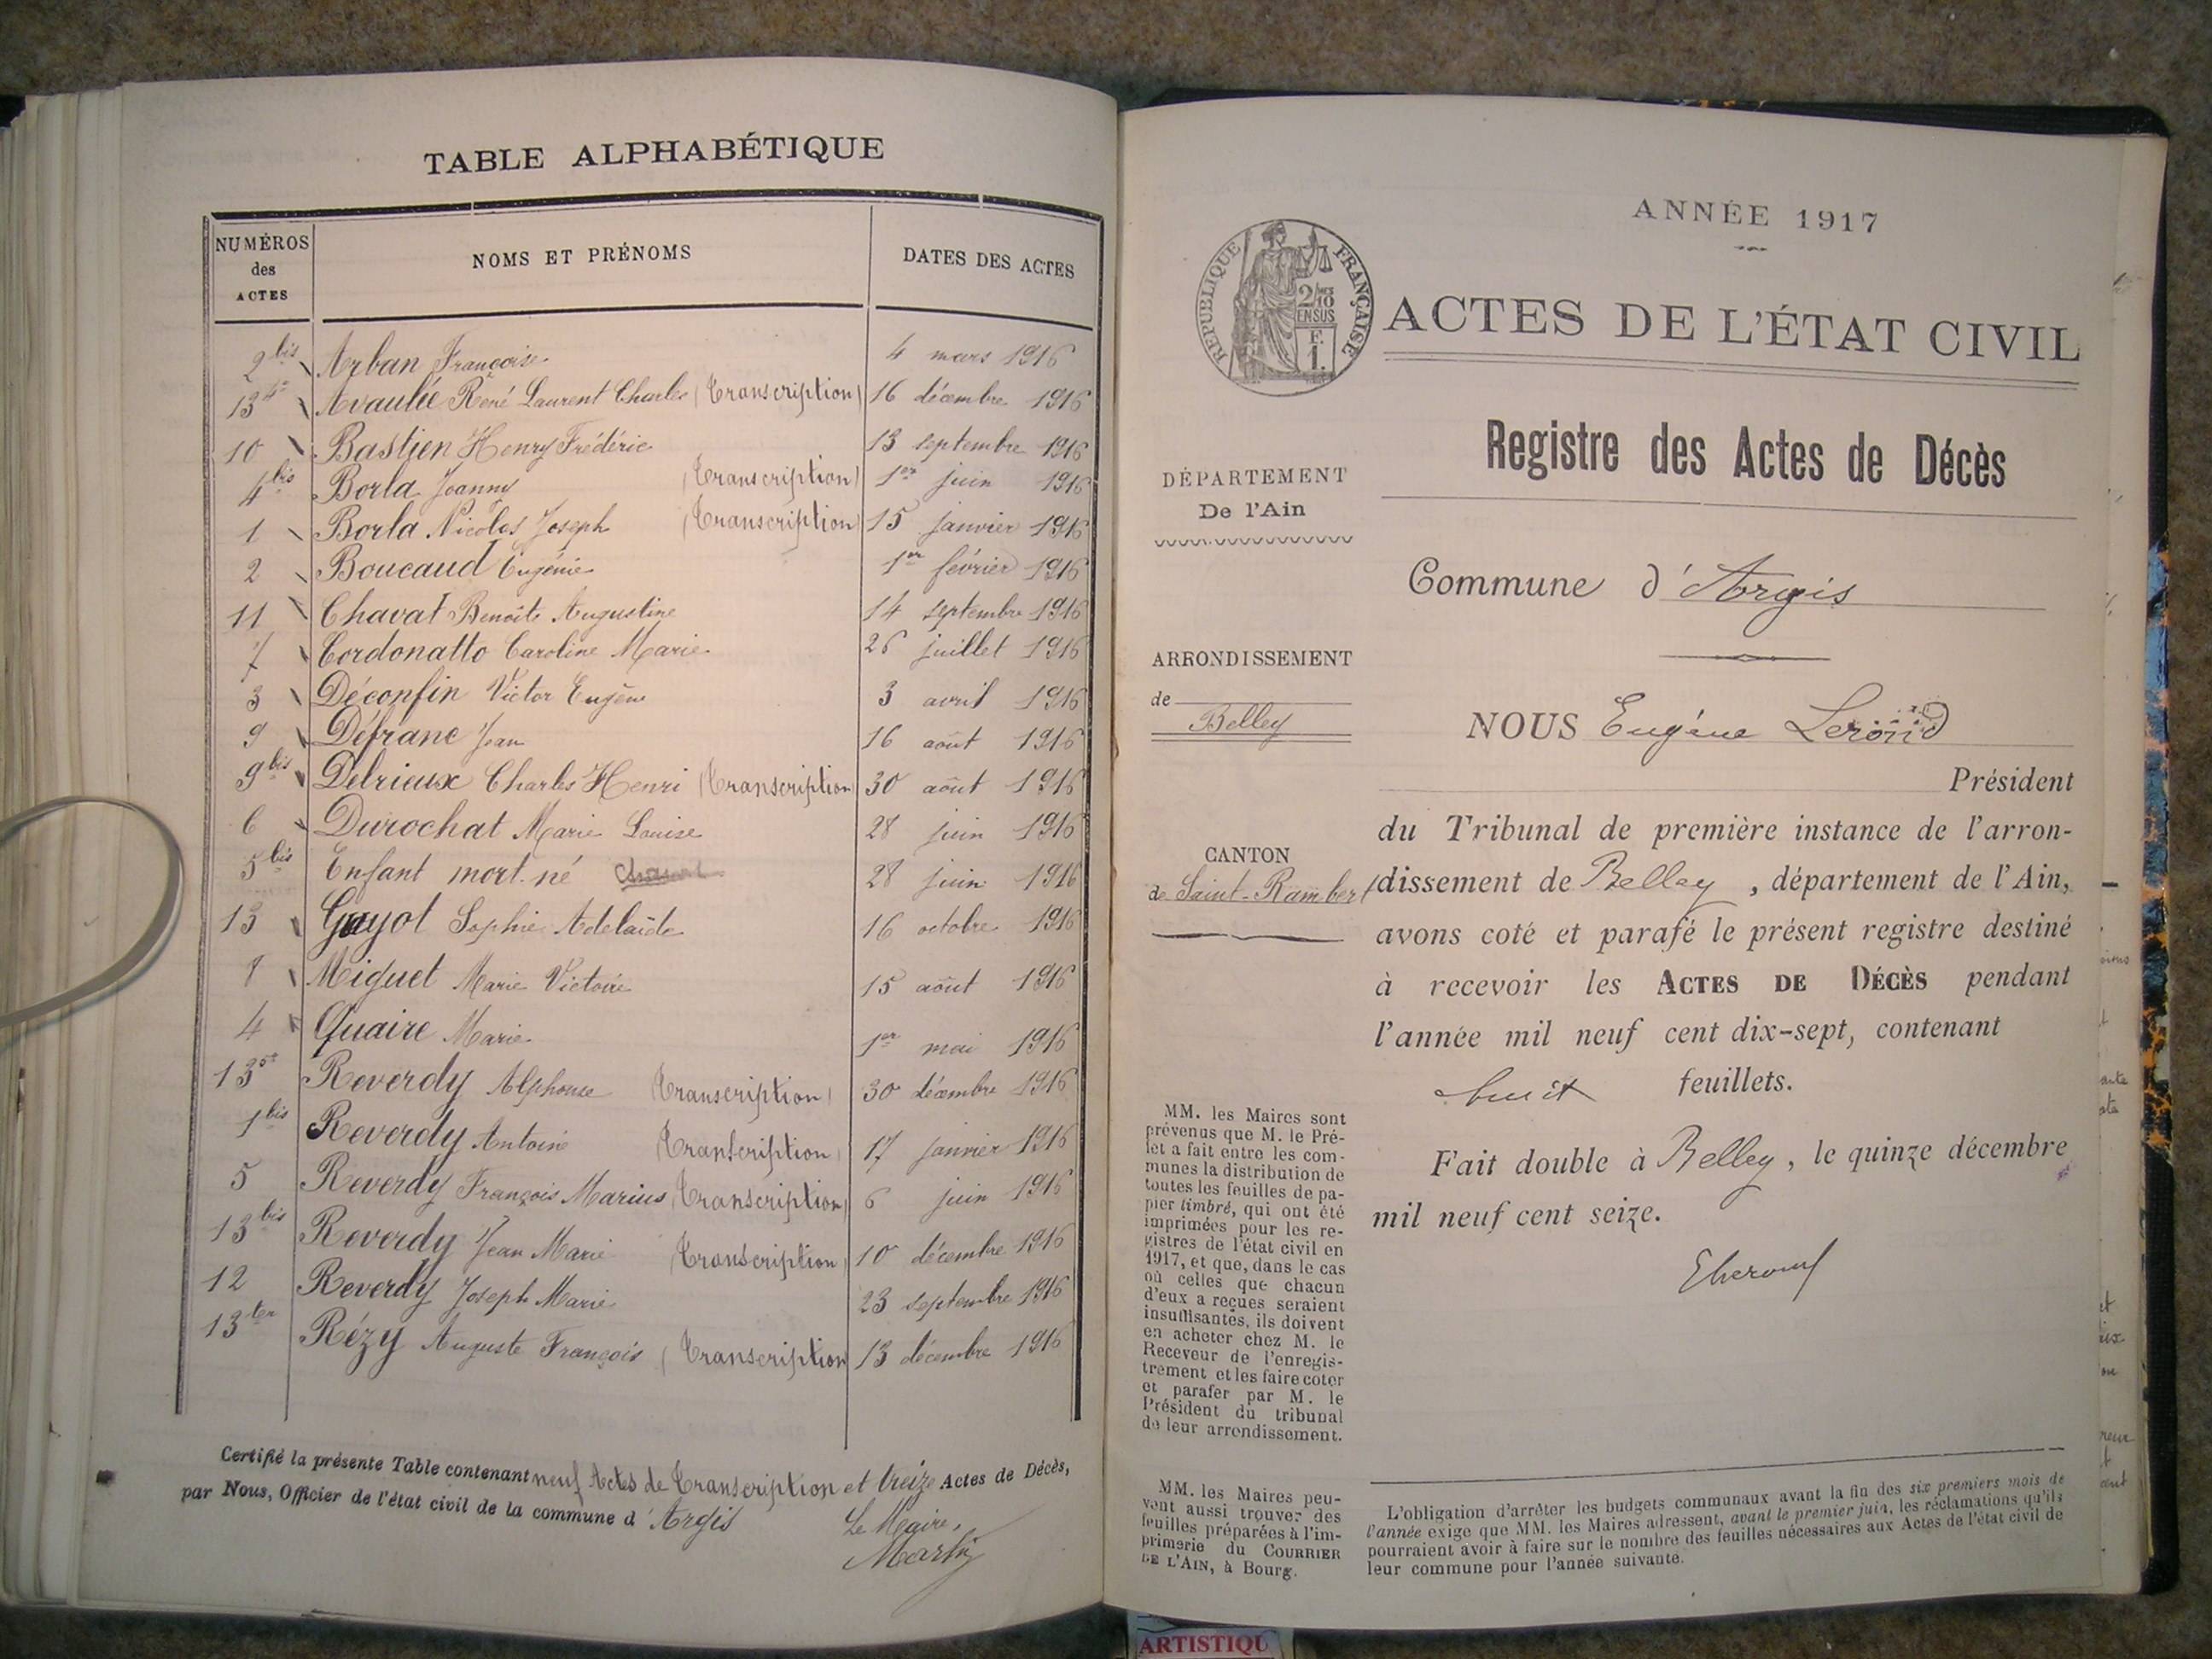 TABLE ALPHABÉTIQUE
NUMÉROS des ACTES
NOMS ET PRÉNOMS
DATES DES ACTES
2 bis Arban Françoise 4 mars 1916
13 4° Avaulée René Laurent Charles (Transcription) 16 décembre 1916
10 Bastien Henry Frédéric 13 septembre 1916
4 bis Borla Joanny (Transcription) 1er juin 1916
1 Borla Nicolas Joseph (Transcription) 15 janvier 1916
2 Boucaud Eugénie 1er février 1916
11 Chavat Benoîte Augustine 14 septembre 1916
7 Cordonatto Caroline Marie 26 juillet 1916
3 Déconfin Victor Eugène 3 avril 1916
9 Défranc Jean 16 août 1916
9 bis Delrieux Charles Henri (Transcription) 30 août 1916
6 Durochat Marie Louise 28 juin 1916
5 bis Enfant mort-né 28 juin 1916
13 Guyot Sophie Adelaïde 16 octobre 1916
8 Miguet Marie Victoire 15 août 1916
4 Quaire Marie 1er mai 1916
13 5t Reverdy Alphonse (Transcription) 30 décembre 1916
1 bis Reverdy Antoine (Transcription) 17 janvier 1916
5 Reverdy François Marius (Transcription) 6 juin 1916
13 bis Reverdy Jean Marie (Transcription) 10 décembre 1916
12 Reverdy Joseph Marie 23 septembre 1916
13 ter Rézy Auguste François (Transcription 13 décembre 1916
Certifié la présente Table contenant neuf Actes de Transcription et treize Actes de Décès,
par Nous, Officier de l'état civil de la commune d'Argis
Le Maire,
Martin
ANNÉE 1917
RÉPUBLIQUE FRANÇAISE
2/10 EN SUS
F. 1.
ACTES DE L'ÉTAT CIVIL
Registre des Actes de Décès
DÉPARTEMENT
De l'Ain
Commune d'Argis
ARRONDISSEMENT
de Belley
NOUS Eugène
Président
du Tribunal de première instance de l'arron-
dissement de Belley, département de l'Ain,
avons coté et parafé le présent registre destiné
à recevoir les ACTES DE DÉCÈS pendant
l'année mil neuf cent dix-sept, contenant
huit feuillets.
Fait double à Belley, le quinze décembre
mil neuf cent seize.
CANTON
de Saint-Rambert
MM. les Maires sont
prévenus que M. le Pré-
fet a fait entre les com-
munes la distribution de
toutes les feuilles de pa-
pier timbré, qui ont été
imprimées pour les re-
gistres de l'état civil en
1917, et que, dans le cas
où celles que chacun
d'eux a reçues seraient
insuffisantes, ils doivent
en acheter chez M. le
Receveur de l'enregis-
trement et les faire coter
et parafer par M. le
Président du tribunal
de leur arrondissement.
MM. les Maires peu-
vent aussi trouver des
feuilles préparées à l'im-
primerie du COURRIER
DE L'AIN, à Bourg.
L'obligation d'arrêter les budgets communaux avant la fin des six premiers mois de
l'année exige que MM. les Maires adressent, avant le premier juin, les réclamations qu'ils
pourraient avoir à faire sur le nombre des feuilles nécessaires aux Actes de l'état civil de
leur commune pour l'année suivante.
ARTISTIQU